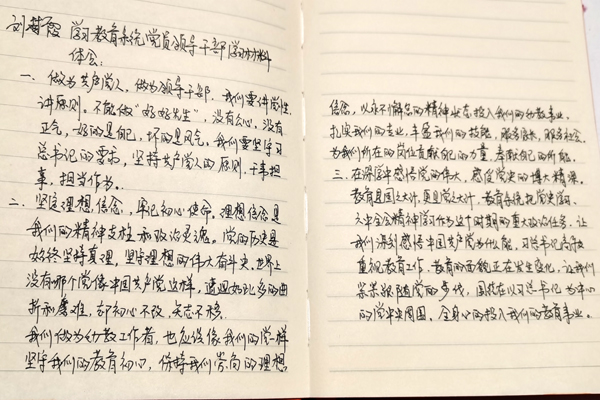 学习教育系统党员领导干部学习材料
体会:
一、做为共产党人,做为领导干部,我们要讲党性
讲原则。不能做“好好先生”,没有公心,没有
正气,好的是自己,坏的是风气。我们要坚守习
总书记的要求,坚持共产党人的原则,干事担
事,担当作为。
二、坚定理想信念,牢记初心使命,理想信念是
我们的精神支柱和政治灵魂。党的历史是
始终坚持真理,坚守理想的伟大奋斗史,世界上
没有那个党像中国共产党这样,遭遇如此多的曲
折和磨难,却初心不改,矢志不移。
我们做为幼教工作者,也应该像我们的党一样
坚守我们的教育初心,保持我们崇高的理想
信念,以永不懈怠的精神状态投入我们的幼教事业。
扎实我们的专业,丰盈我们的技能,服务家长,服务社会,
为我们所在的岗位贡献自己的力量,奉献自己的所能。
三、在深学中感悟党的伟大,感应党史的博大精深。
教育是国之大计,更是党之大计,教育系统把党史学习、
六中全会精神学习作为这个时期的重大政治任务,让
我们深刻感悟中国共产党为什么能,习总书记高度
重视教育工作,教育的面貌正在发生变化,让我们
紧紧跟随党的步伐,团结在以习总书记为中心
的党中央周围,全身心的投入我们的教育事业。